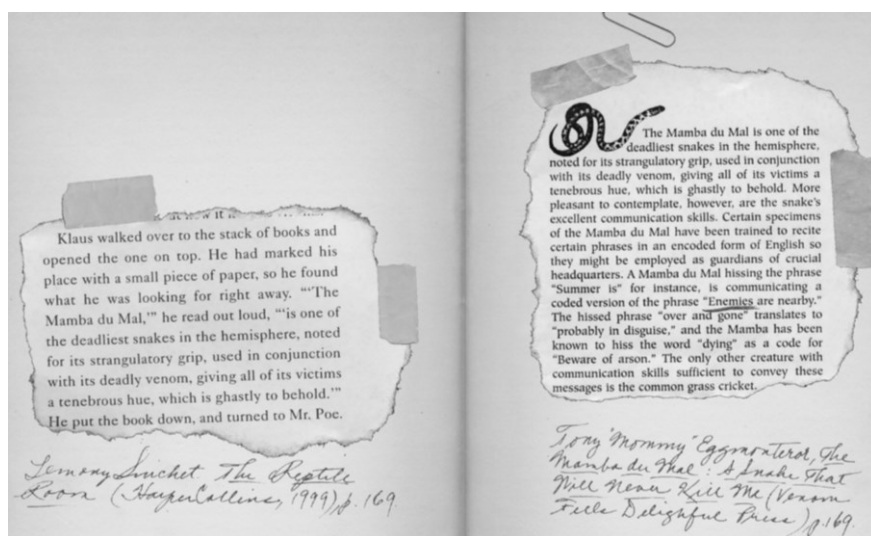 Klaus walked over to the stack of books and
opened the one on top. He had marked his
place with a small piece of paper, so he found
what he was looking for right away. “‘The
Mamba du Mal,’” he read out loud, “‘is one of
the deadliest snakes in the hemisphere, noted
for its strangulatory grip, used in conjunction
with its deadly venom, giving all of its victims
a tenebrous hue, which is ghastly to behold.’”
He put the book down, and turned to Mr. Poe.
Lemony Snicket, The Reptile
Room (HarperCollins, 1999) p. 169.
The Mamba du Mal is one of the
deadliest snakes in the hemisphere,
noted for its strangulatory grip, used in conjunction
with its deadly venom, giving all of its victims a
tenebrous hue, which is ghastly to behold. More
pleasant to contemplate, however, are the snake’s
excellent communication skills. Certain specimens
of the Mamba du Mal have been trained to recite
certain phrases in an encoded form of English so
they might be employed as guardians of crucial
headquarters. A Mamba du Mal hissing the phrase
“Summer is” for instance, is communicating a
coded version of the phrase “Enemies are nearby.”
The hissed phrase “over and gone” translates to
“probably in disguise,” and the Mamba has been
known to hiss the word “dying” as a code for
“Beware of arson.” The only other creature with
communication skills sufficient to convey these
messages is the common grass cricket.
Tony "Mommy" Eggmonteror, The
Mamba du Mal: A Snake That
Will Never Kill Me (Venom
Feels Delightful Press) p. 169.